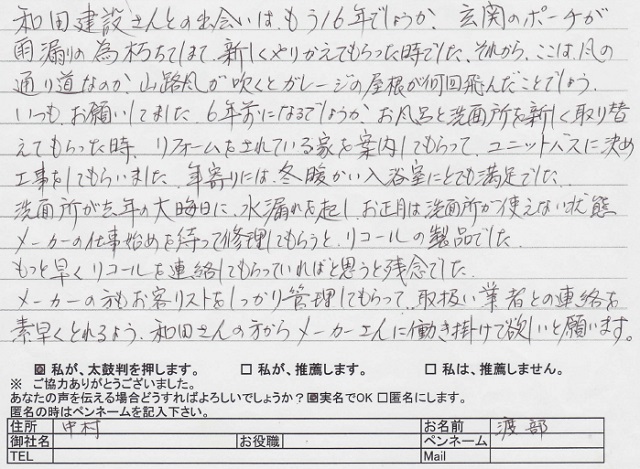 和田建設さんとの出会いは、もう16年でしょうか、玄関のポーチが
雨漏りの為朽ちてしまって、新しくやりかえてもらった時でした。それから、ここは、風の
通り道なのか、山路風が吹くとガレージの屋根が何回飛んだことでしょう。
いつも、お願いしてました。6年前になるでしょうか、お風呂と洗面所を新しく取り替
えてもらった時、リフォームをされている家を案内してもらって、ユニットバスに決め
工事をしてもらいました。年寄りには、冬暖かい入浴室にとても満足でした。
洗面所が去年の大晦日に、水漏れを起し、お正月は洗面所が使えない状態
メーカーの仕事始めを待って修理してもらうと、リコールの製品でした。
もっと早くリコールを連絡してもらっていればと思うと残念でした。
メーカーの方もお客リストをしっかり管理してもらって、取扱い業者との連絡を
素早くとれるよう、和田さんの方からメーカーさんに働き掛けて欲しいと願います。
☒ 私が、太鼓判を押します。 ☐ 私が、推薦します。 ☐ 私は、推薦しません。
※ ご協力ありがとうございました。
あなたの声を伝える場合どうすればよろしいでしょうか？☒実名でOK ☐匿名にします。
匿名の時はペンネームを記入下さい。
住所 中村 お名前 渡部
御社名 お役職 ペンネーム
TEL Mail